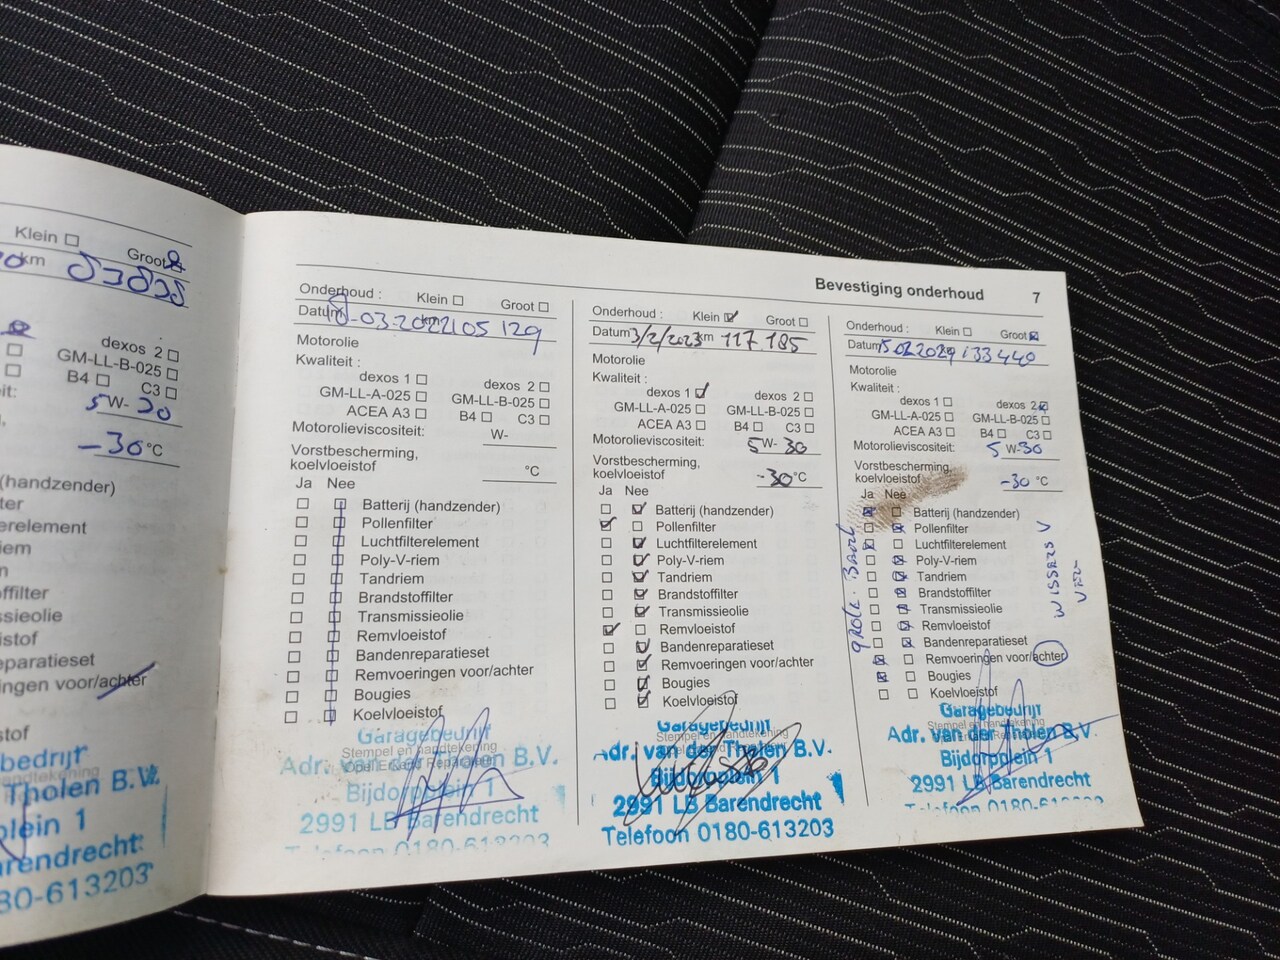 Klein Groot
km 83828
dexos 2
GM-LL-B-025
B4 C3
5W-30
-30 °C
(handzender)
voor/achter
Tholen B.V.
Bevestiging onderhoud 7
Onderhoud : Klein Groot
Datum 10-03-2022 km 105 129
Motorolie
Kwaliteit :
dexos 1 dexos 2
GM-LL-A-025 GM-LL-B-025
ACEA A3 B4 C3
Motorolieviscositeit: W-
Vorstbescherming,
koelvloeistof °C
Ja Nee
Batterij (handzender)
Pollenfilter
Luchtfilterelement
Poly-V-riem
Tandriem
Brandstoffilter
Transmissieolie
Remvloeistof
Bandenreparatieset
Remvoeringen voor/achter
Bougies
Koelvloeistof
Garagebedrijf
Stempel en handtekening
Adr. van der Tholen B.V.
Bijdorpplein 1
2991 LB Barendrecht
Telefoon 0180-613203
Onderhoud : Klein Groot
Datum 3/2/2023 km 117 185
Motorolie
Kwaliteit :
dexos 1 dexos 2
GM-LL-A-025 GM-LL-B-025
ACEA A3 B4 C3
Motorolieviscositeit: 5W-30
Vorstbescherming,
koelvloeistof -30 °C
Ja Nee
Batterij (handzender)
Pollenfilter
Luchtfilterelement
Poly-V-riem
Tandriem
Brandstoffilter
Transmissieolie
Remvloeistof
Bandenreparatieset
Remvoeringen voor/achter
Bougies
Koelvloeistof
Garagebedrijf
Adr. van der Tholen B.V.
Bijdorpplein 1
2991 LB Barendrecht
Telefoon 0180-613203
Onderhoud : Klein Groot
Datum 15.02.2024 133 440
Motorolie
Kwaliteit :
dexos 1 dexos 2
GM-LL-A-025 GM-LL-B-025
ACEA A3 B4 C3
Motorolieviscositeit: 5 W-30
Vorstbescherming,
koelvloeistof -30 °C
Ja Nee
Batterij (handzender)
Pollenfilter
Luchtfilterelement
Poly-V-riem
Tandriem
Brandstoffilter
Transmissieolie
Remvloeistof
Bandenreparatieset
Remvoeringen voor/achter
Bougies
Koelvloeistof
Garagebedrijf
Adr. van der Tholen B.V.
Bijdorpplein 1
2991 LB Barendrecht
Telefoon 0180-613203